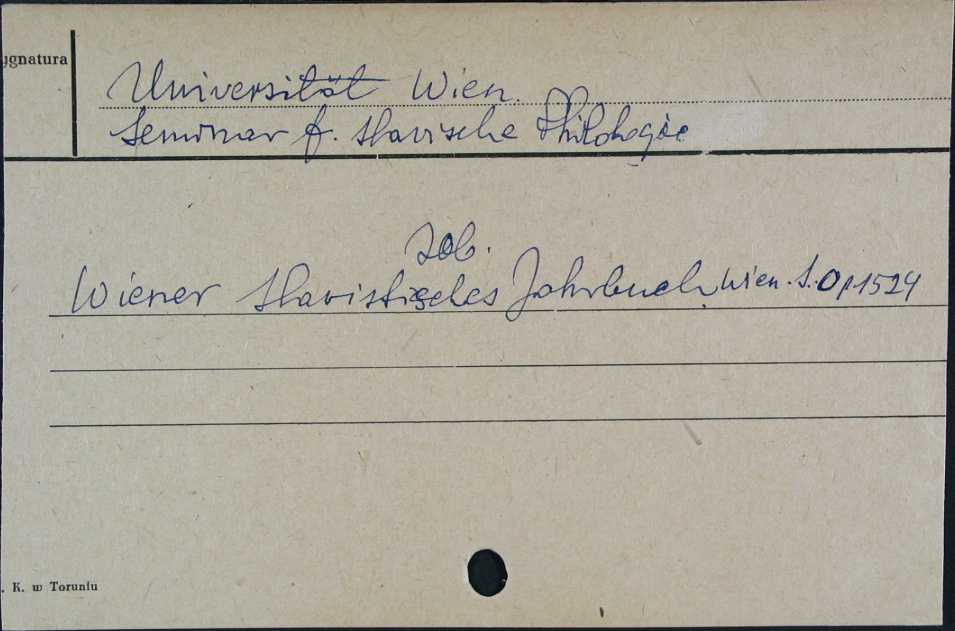 ygnatura
Universität Wien.
Seminar f. slavische Philologie
zob.
Wiener Slavistisches Jahrbuch Wien. S. Op. 1524
. K. w Toruniu